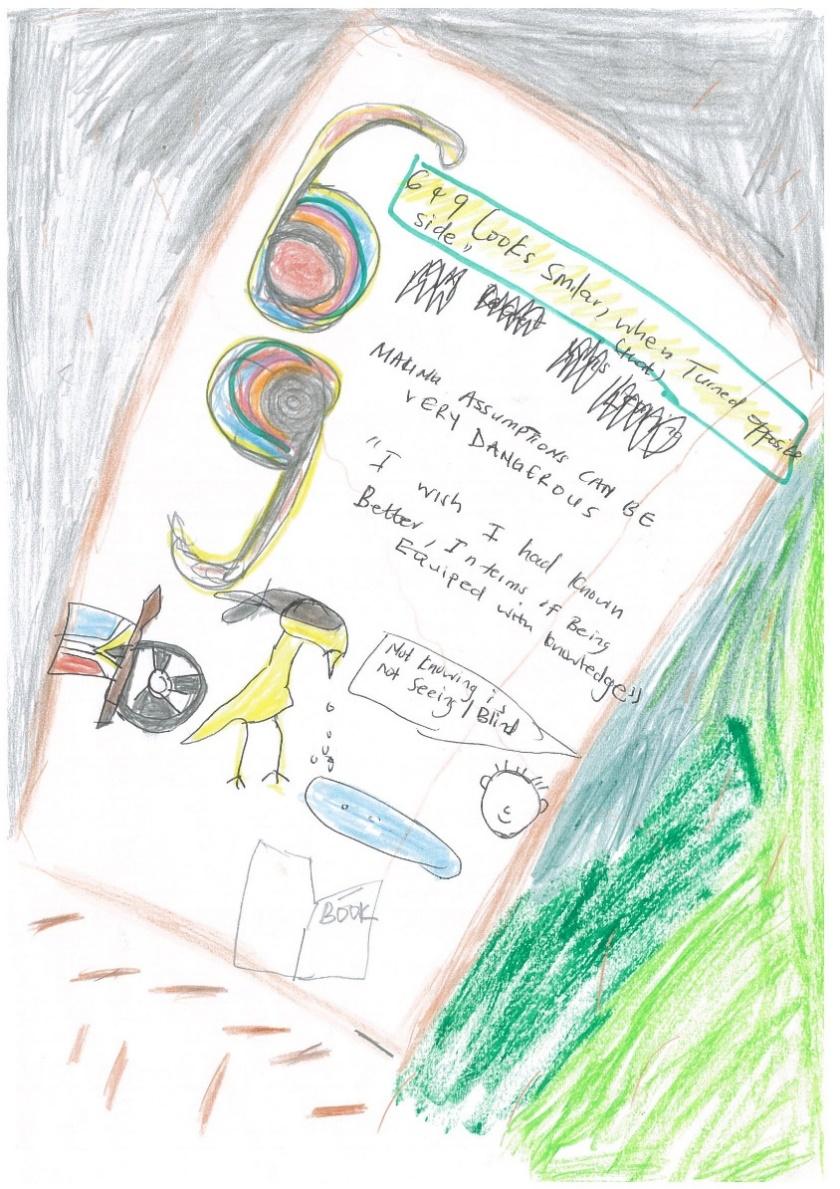 6 & 9 Looks Smilar, when Turned opposite
side"
(that)
MAKING ASSUMPTIONS CAN BE
VERY DANGEROUS
"I wish I had known
Better, In terms of Being
Equiped with knowledge"
Not knowing is
not Seeing / Blind
BOOK